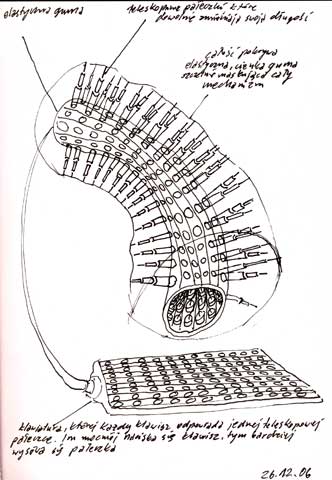 elastyczna guma
teleskopowe pałeczki które
dowolnie zmieniają swoją długość
całość pokrywa
elastyczna, cienka guma
szczelnie maskująca cały
mechanizm
klawiatura, której każdy klawisz, odpowiada jednej teleskopowej
pałeczce. Im mocniej naciska się klawisz, tym bardziej
wysuwa się pałeczka
26.12.06